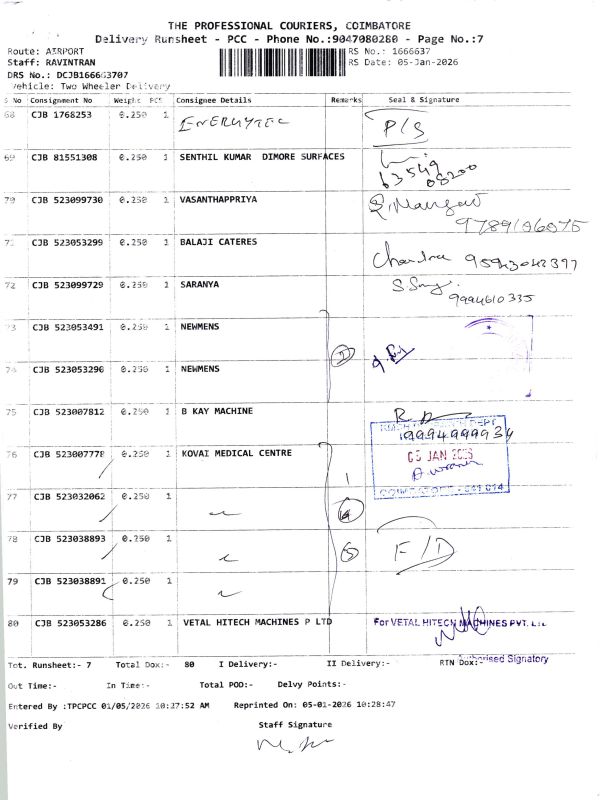 THE PROFESSIONAL COURIERS, COIMBATORE
Delivery Runsheet - PCC - Phone No.:9047080280 - Page No.:7
Route: AIRPORT
RS No.: 1666637
Staff: RAVINTRAN
RS Date: 05-Jan-2026
DRS No.: DCJB166663707
Vehicle: Two Wheeler Delivery
S No Consignment No Weight PCS Consignee Details Remarks Seal & Signature
68 CJB 1768253 0.250 1 ENERGYTEC P/S
69 CJB 81551308 0.250 1 SENTHIL KUMAR DIMORE SURFACES
63549
08200
70 CJB 523099730 0.250 1 VASANTHAPPRIYA
9789106075
71 CJB 523053299 0.250 1 BALAJI CATERES
Chandra
72 CJB 523099729 0.250 1 SARANYA
9994610335
73 CJB 523053491 0.250 1 NEWMENS
74 CJB 523053290 0.250 1 NEWMENS
75 CJB 523007812 0.250 1 B KAY MACHINE
9994999934
76 CJB 523007778 0.250 1 KOVAI MEDICAL CENTRE
05 JAN 2026
77 CJB 523032062 0.250 1
COIMBATORE - 641 014
78 CJB 523038893 0.250 1 F/D
79 CJB 523038891 0.250 1
80 CJB 523053286 0.250 1 VETAL HITECH MACHINES P LTD For VETAL HITECH MACHINES PVT. LTD
Authorised Signatory
Tot. Runsheet:- 7 Total Dox:- 80 I Delivery:- II Delivery:- RTN Dox:-
Out Time:- In Time:- Total POD:- Delvy Points:-
Entered By :TPCPCC 01/05/2026 10:27:52 AM Reprinted On: 05-01-2026 10:28:47
Verified By Staff Signature